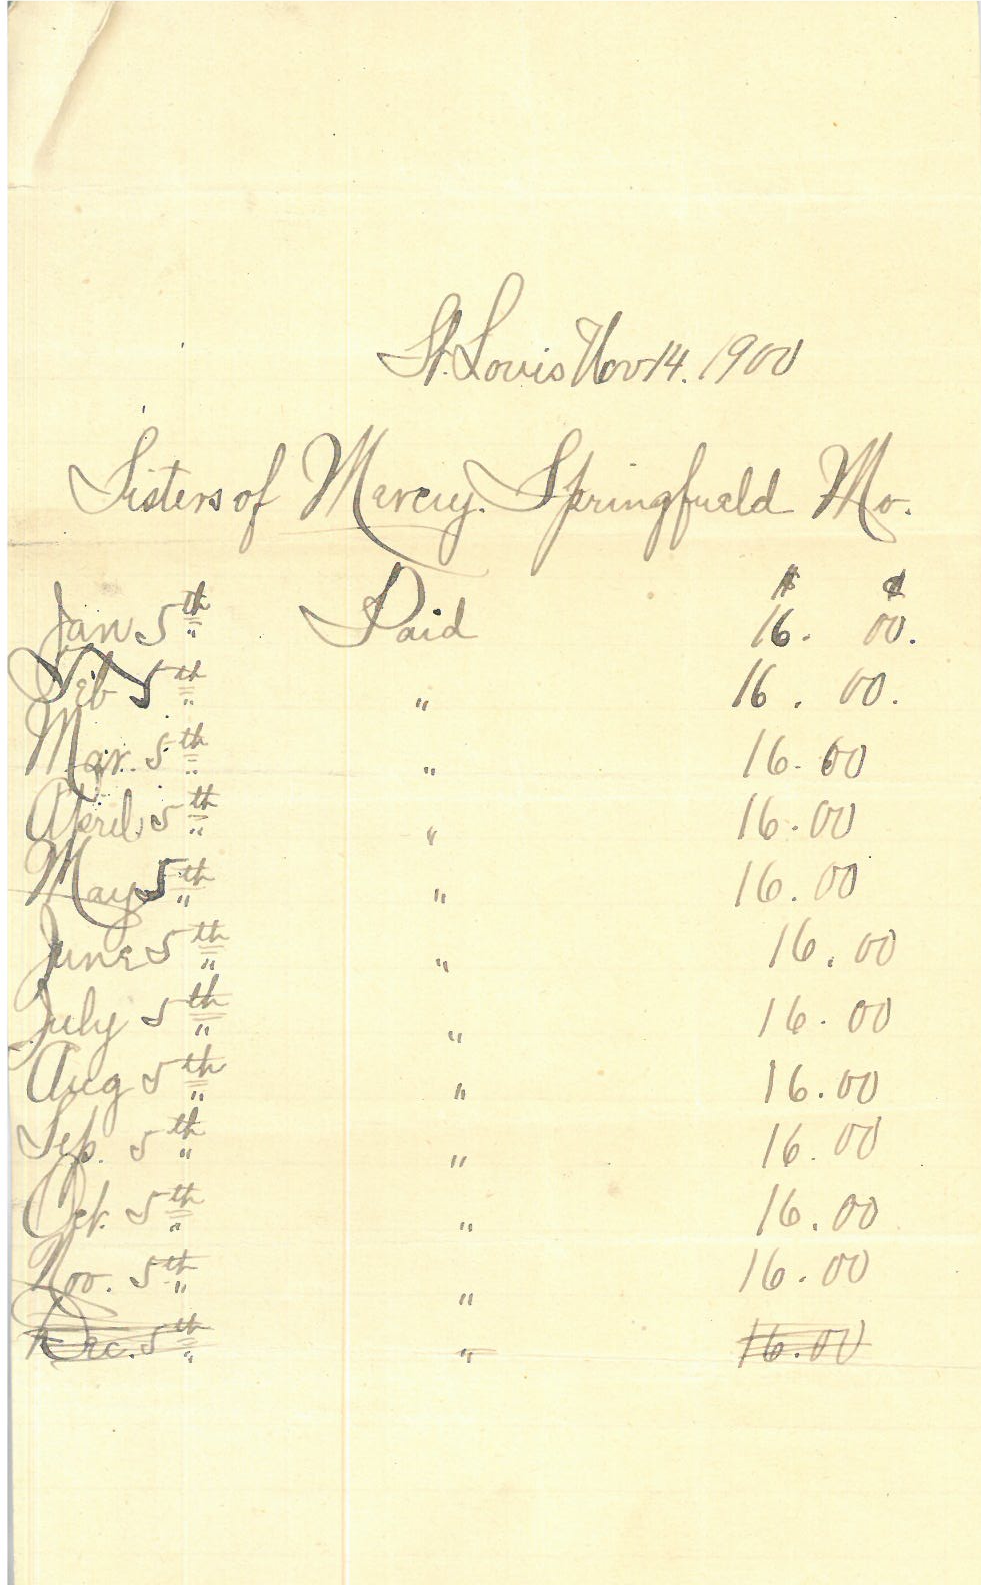 St. Louis Nov 14. 1900
Sisters of Mercy. Springfield Mo.
$ ¢
Jan 5th Paid 16. 00.
Feb 5th " 16. 00.
Mar. 5th " 16. 00
April. 5th " 16.00
May 5th " 16.00
June 5th " 16. 00
July 5th " 16. 00
Aug 5th " 16.00
Sep. 5th " 16. 00
Oct. 5th " 16.00
Nov. 5th " 16.00
Dec. 5th " 16.00